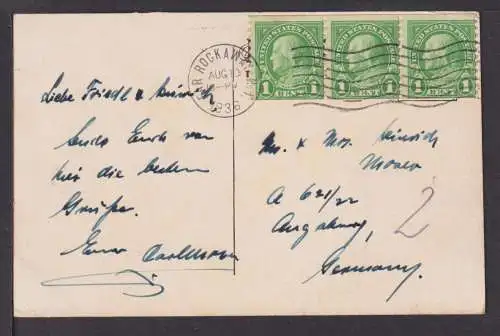 UNITED STATES POSTAGE
1 CENT 1
UNITED STATES POSTAGE
1 CENT 1
UNITED STATES POSTAGE
1 CENT 1
FAR ROCKAWAY
AUG
1936
Liebe Friedl &
Sende Euch von
hier die besten
Grüße.
Euer
Mr. & Mrs. Heinrich
A 621/22
Augsburg,
Germany.
2